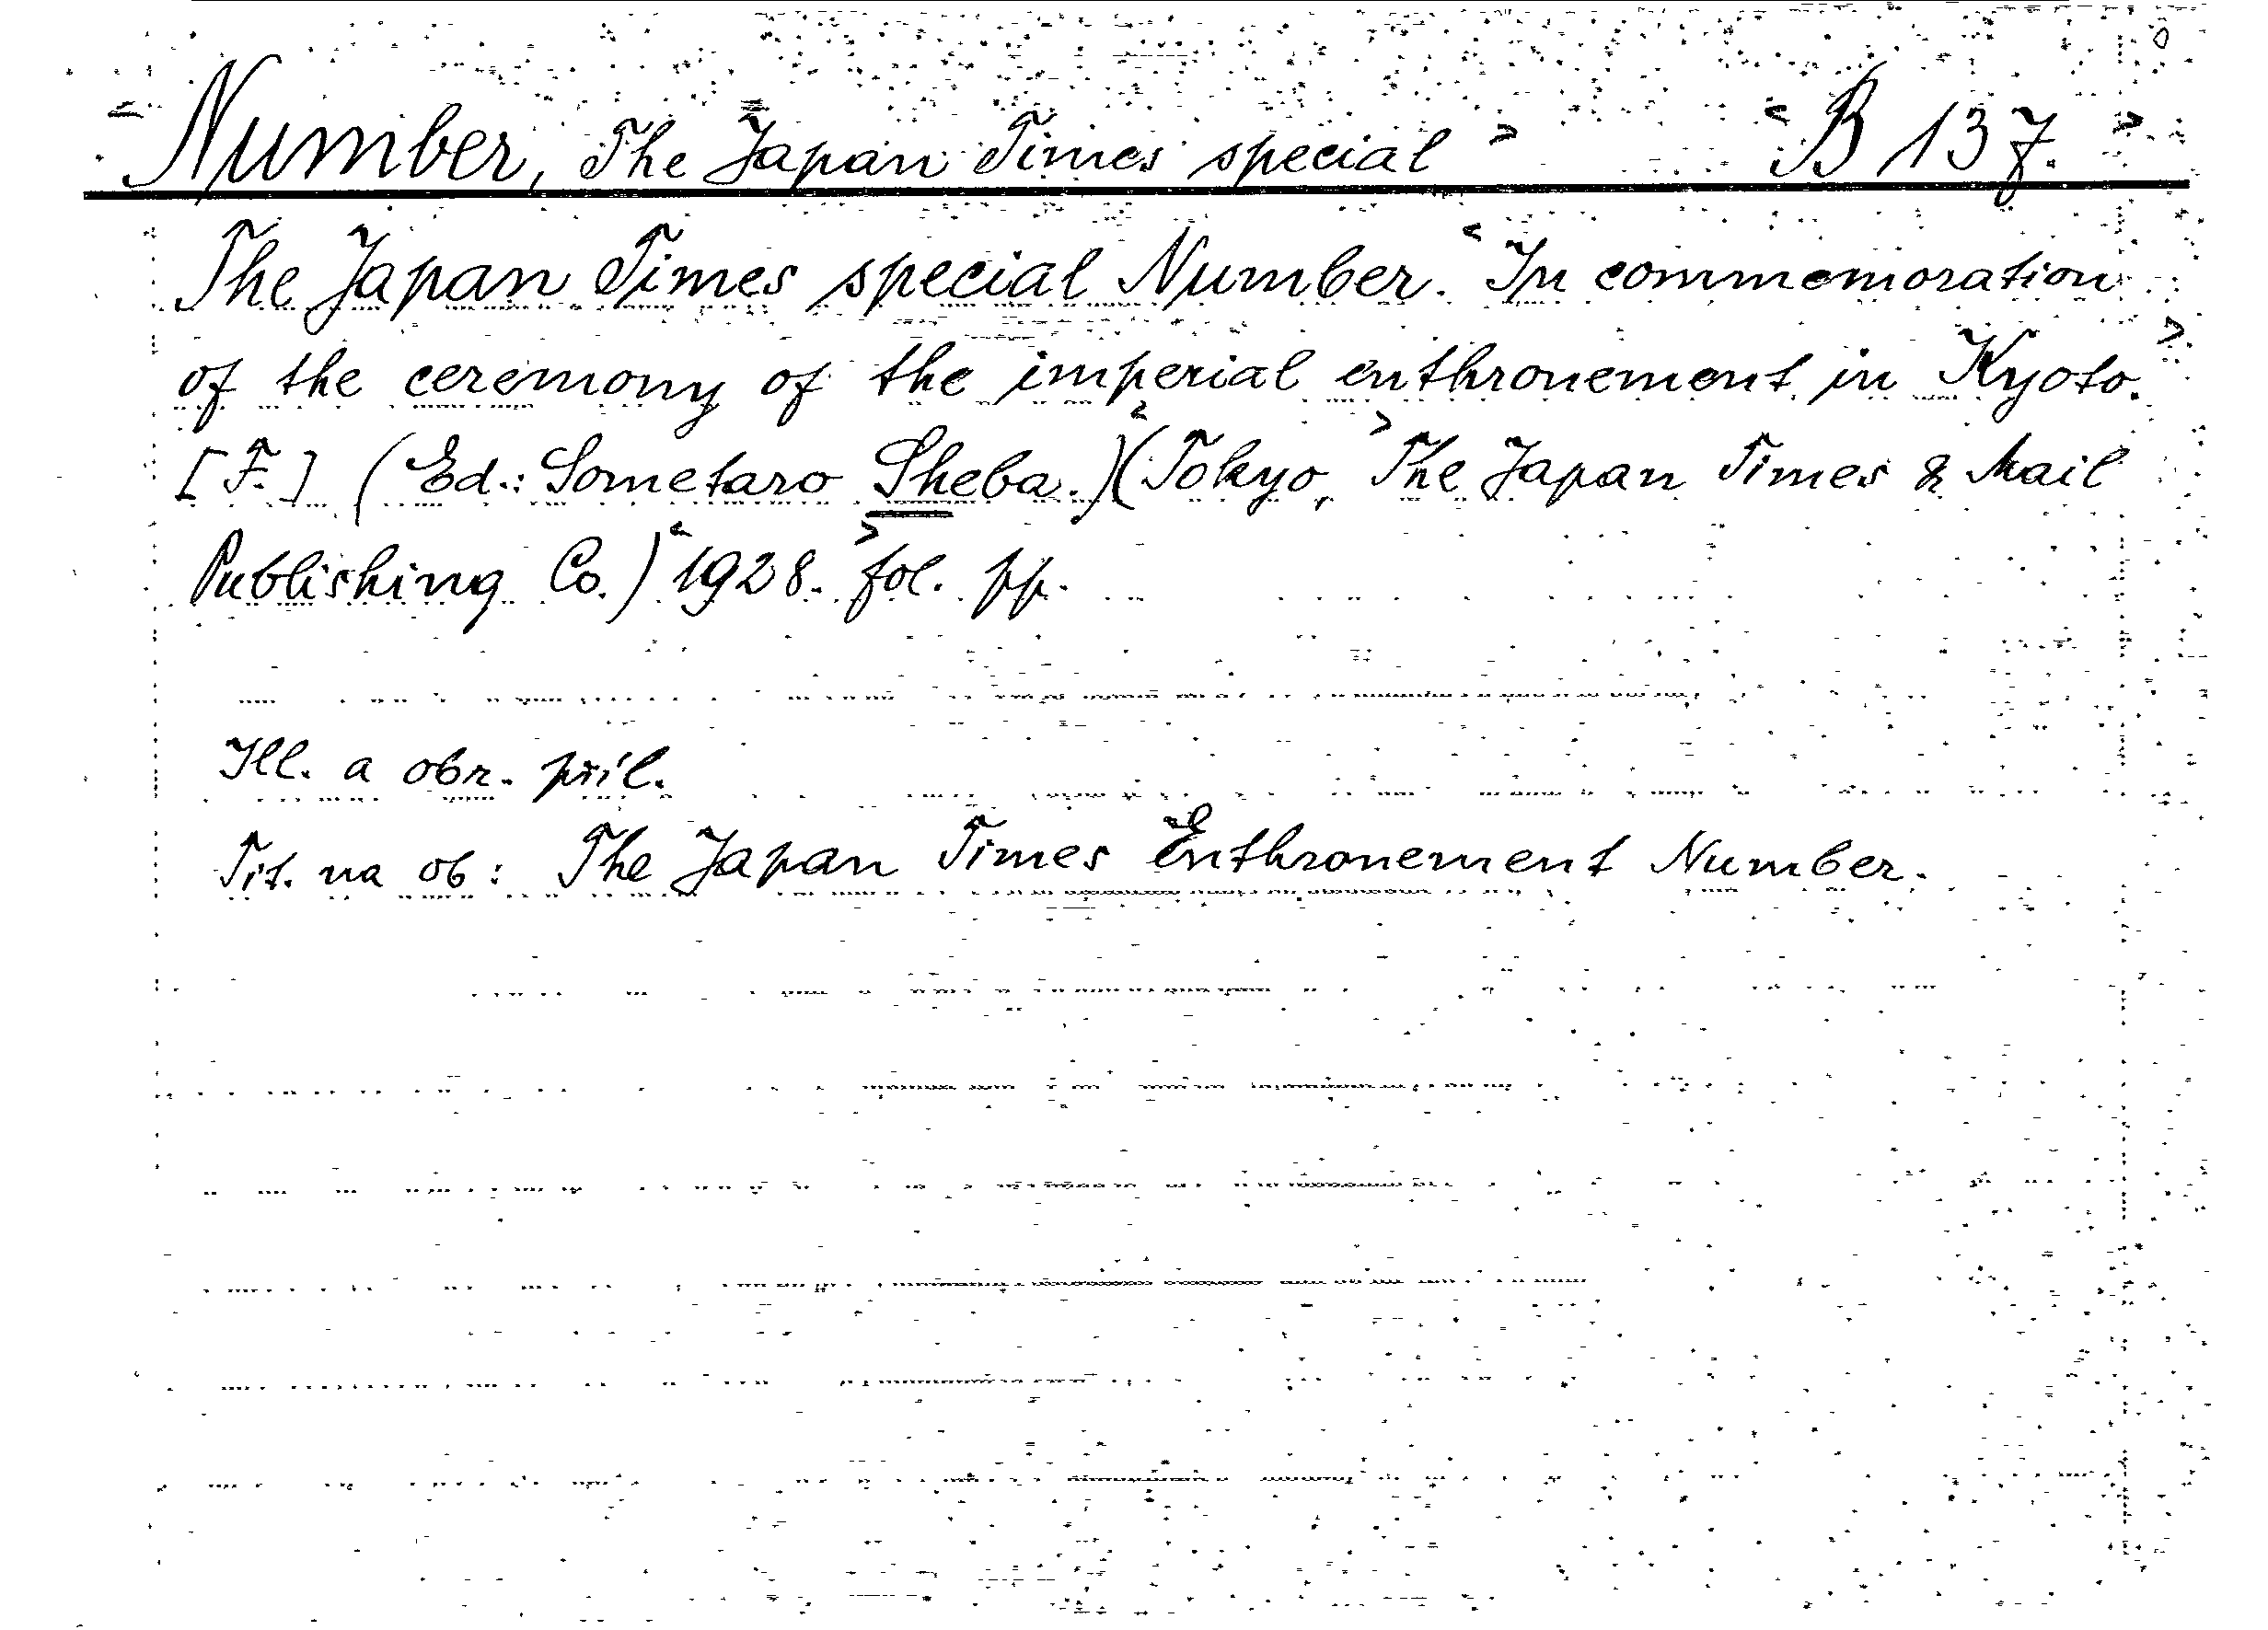 <Number, The Japan Times special> <B 137.>
The Japan Times special Number. <In commemoration
of the ceremony of the imperial enthronement in Kyoto.>
[F.] (Ed.: Sometaro Sheba.) (<Tokyo,> The Japan Times & Mail
Publishing Co.) <1928.> fol. pp.
Ill. a obr. příl.
Tit. na ob: The Japan Times Enthronement Number.